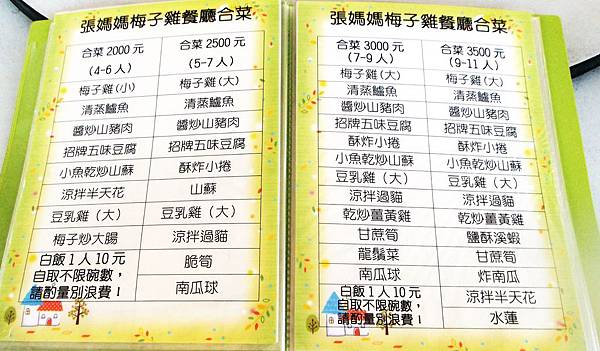 張媽媽梅子雞餐廳合菜
合菜 2000 元
(4-6 人)
梅子雞(小)
清蒸鱸魚
醬炒山豬肉
招牌五味豆腐
小魚乾炒山蘇
涼拌半天花
豆乳雞（大）
梅子炒大腸
白飯 1 人 10 元
自取不限碗數，
請酌量別浪費！
合菜 2500 元
(5-7 人)
梅子雞(大)
清蒸鱸魚
醬炒山豬肉
招牌五味豆腐
酥炸小捲
山蘇
豆乳雞（大）
涼拌過貓
脆筍
南瓜球
張媽媽梅子雞餐廳合菜
合菜 3000 元
(7-9 人)
梅子雞(大)
清蒸鱸魚
醬炒山豬肉
招牌五味豆腐
酥炸小捲
小魚乾炒山蘇
豆乳雞（大）
涼拌過貓
乾炒薑黃雞
甘蔗筍
龍鬚菜
南瓜球
白飯 1 人 10 元
自取不限碗數，
請酌量別浪費！
合菜 3500 元
(9-11 人)
梅子雞(大)
清蒸鱸魚
醬炒山豬肉
招牌五味豆腐
酥炸小捲
小魚乾炒山蘇
豆乳雞（大）
涼拌過貓
乾炒薑黃雞
鹽酥溪蝦
甘蔗筍
炸南瓜
涼拌半天花
水蓮